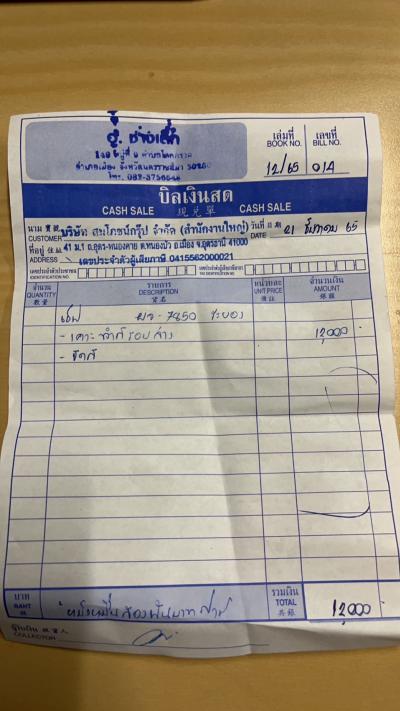 อู๋ ช่างเล็ก
โทร.
เล่มที่ เลขที่
BOOK NO. BILL NO.
12/65 014
บิลเงินสด
CASH SALE 現兑單 CASH SALE
นาม บริษัท สหโภชน์กรุ๊ป จำกัด (สำนักงานใหญ่) วันที่ 21 ธันวาคม 65
CUSTOMER DATE
ที่อยู่ 41 ม.1 ถ.อุดร-หนองคาย ต.หนองบัว อ.เมือง จ.อุดรธานี 41000
ADDRESS เลขประจำตัวผู้เสียภาษี 0415562000021
จำนวน รายการ หน่วยละ จำนวนเงิน
QUANTITY DESCRIPTION UNIT PRICE AMOUNT
數量 貨名 價註 銀額
7850 ระยอง
- เคาะ รอบล่าง 12,000
- ขัดสี
บาท หนึ่งหมื่นสองพันบาทถ้วน รวมเงิน 12,000
BAHT TOTAL
共銀
ผู้รับเงิน
COLLECTOR